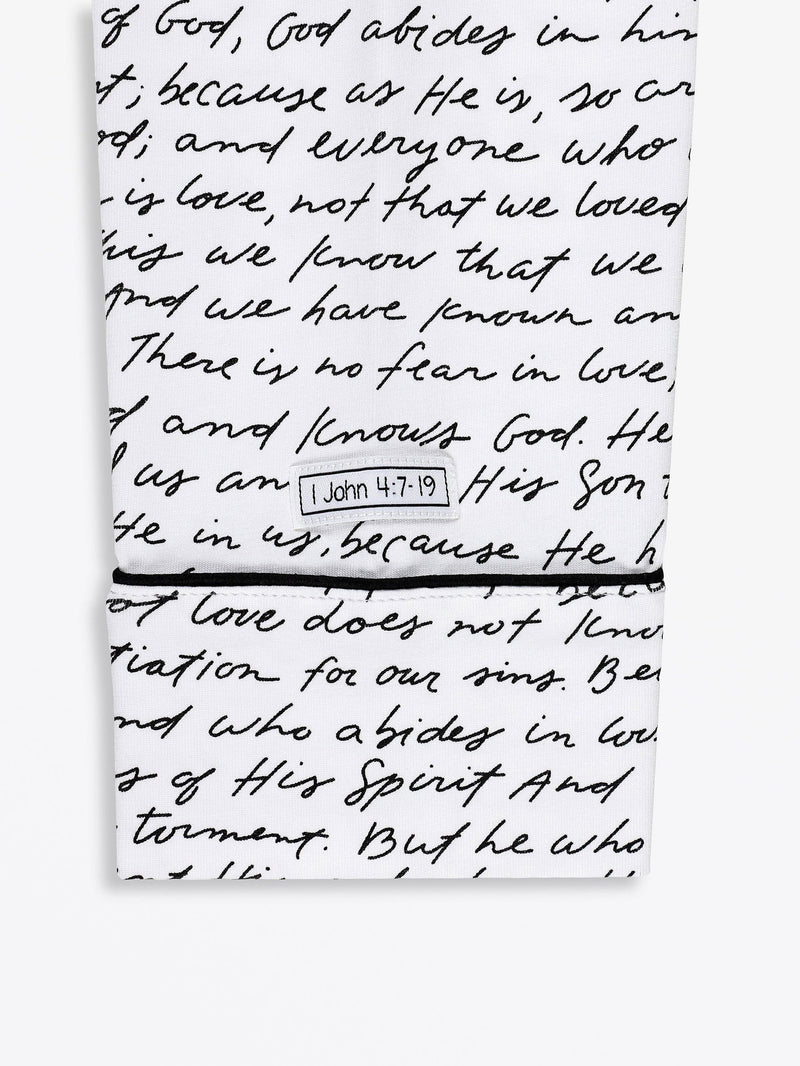 of God, God abides in him
; because as He is, so ar
od; and everyone who
is love, not that we loved
this we know that we
And we have known an
There is no fear in love,
d and knows God. He
us an His Son
1 John 4:7-19
He in us, because He h
love does not kno
tiation for our sins. Be
nd who abides in lov
s of His Spirit And
torment. But he who